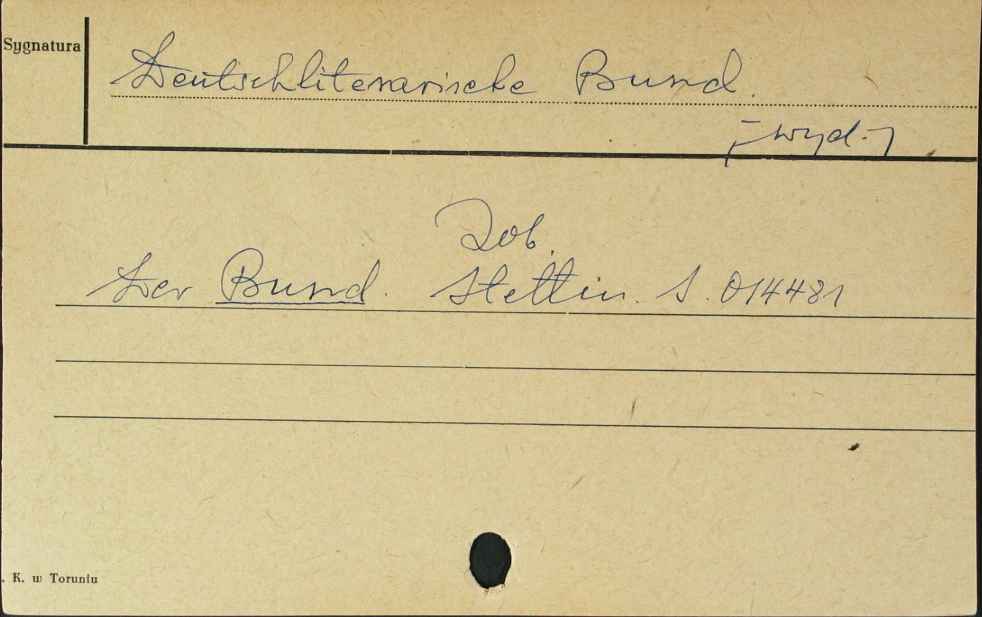 Sygnatura
Deutschliterarische Bund.
[wyd.]
Zob.
Der Bund. Stettin. S. 014481
. K. w Toruniu